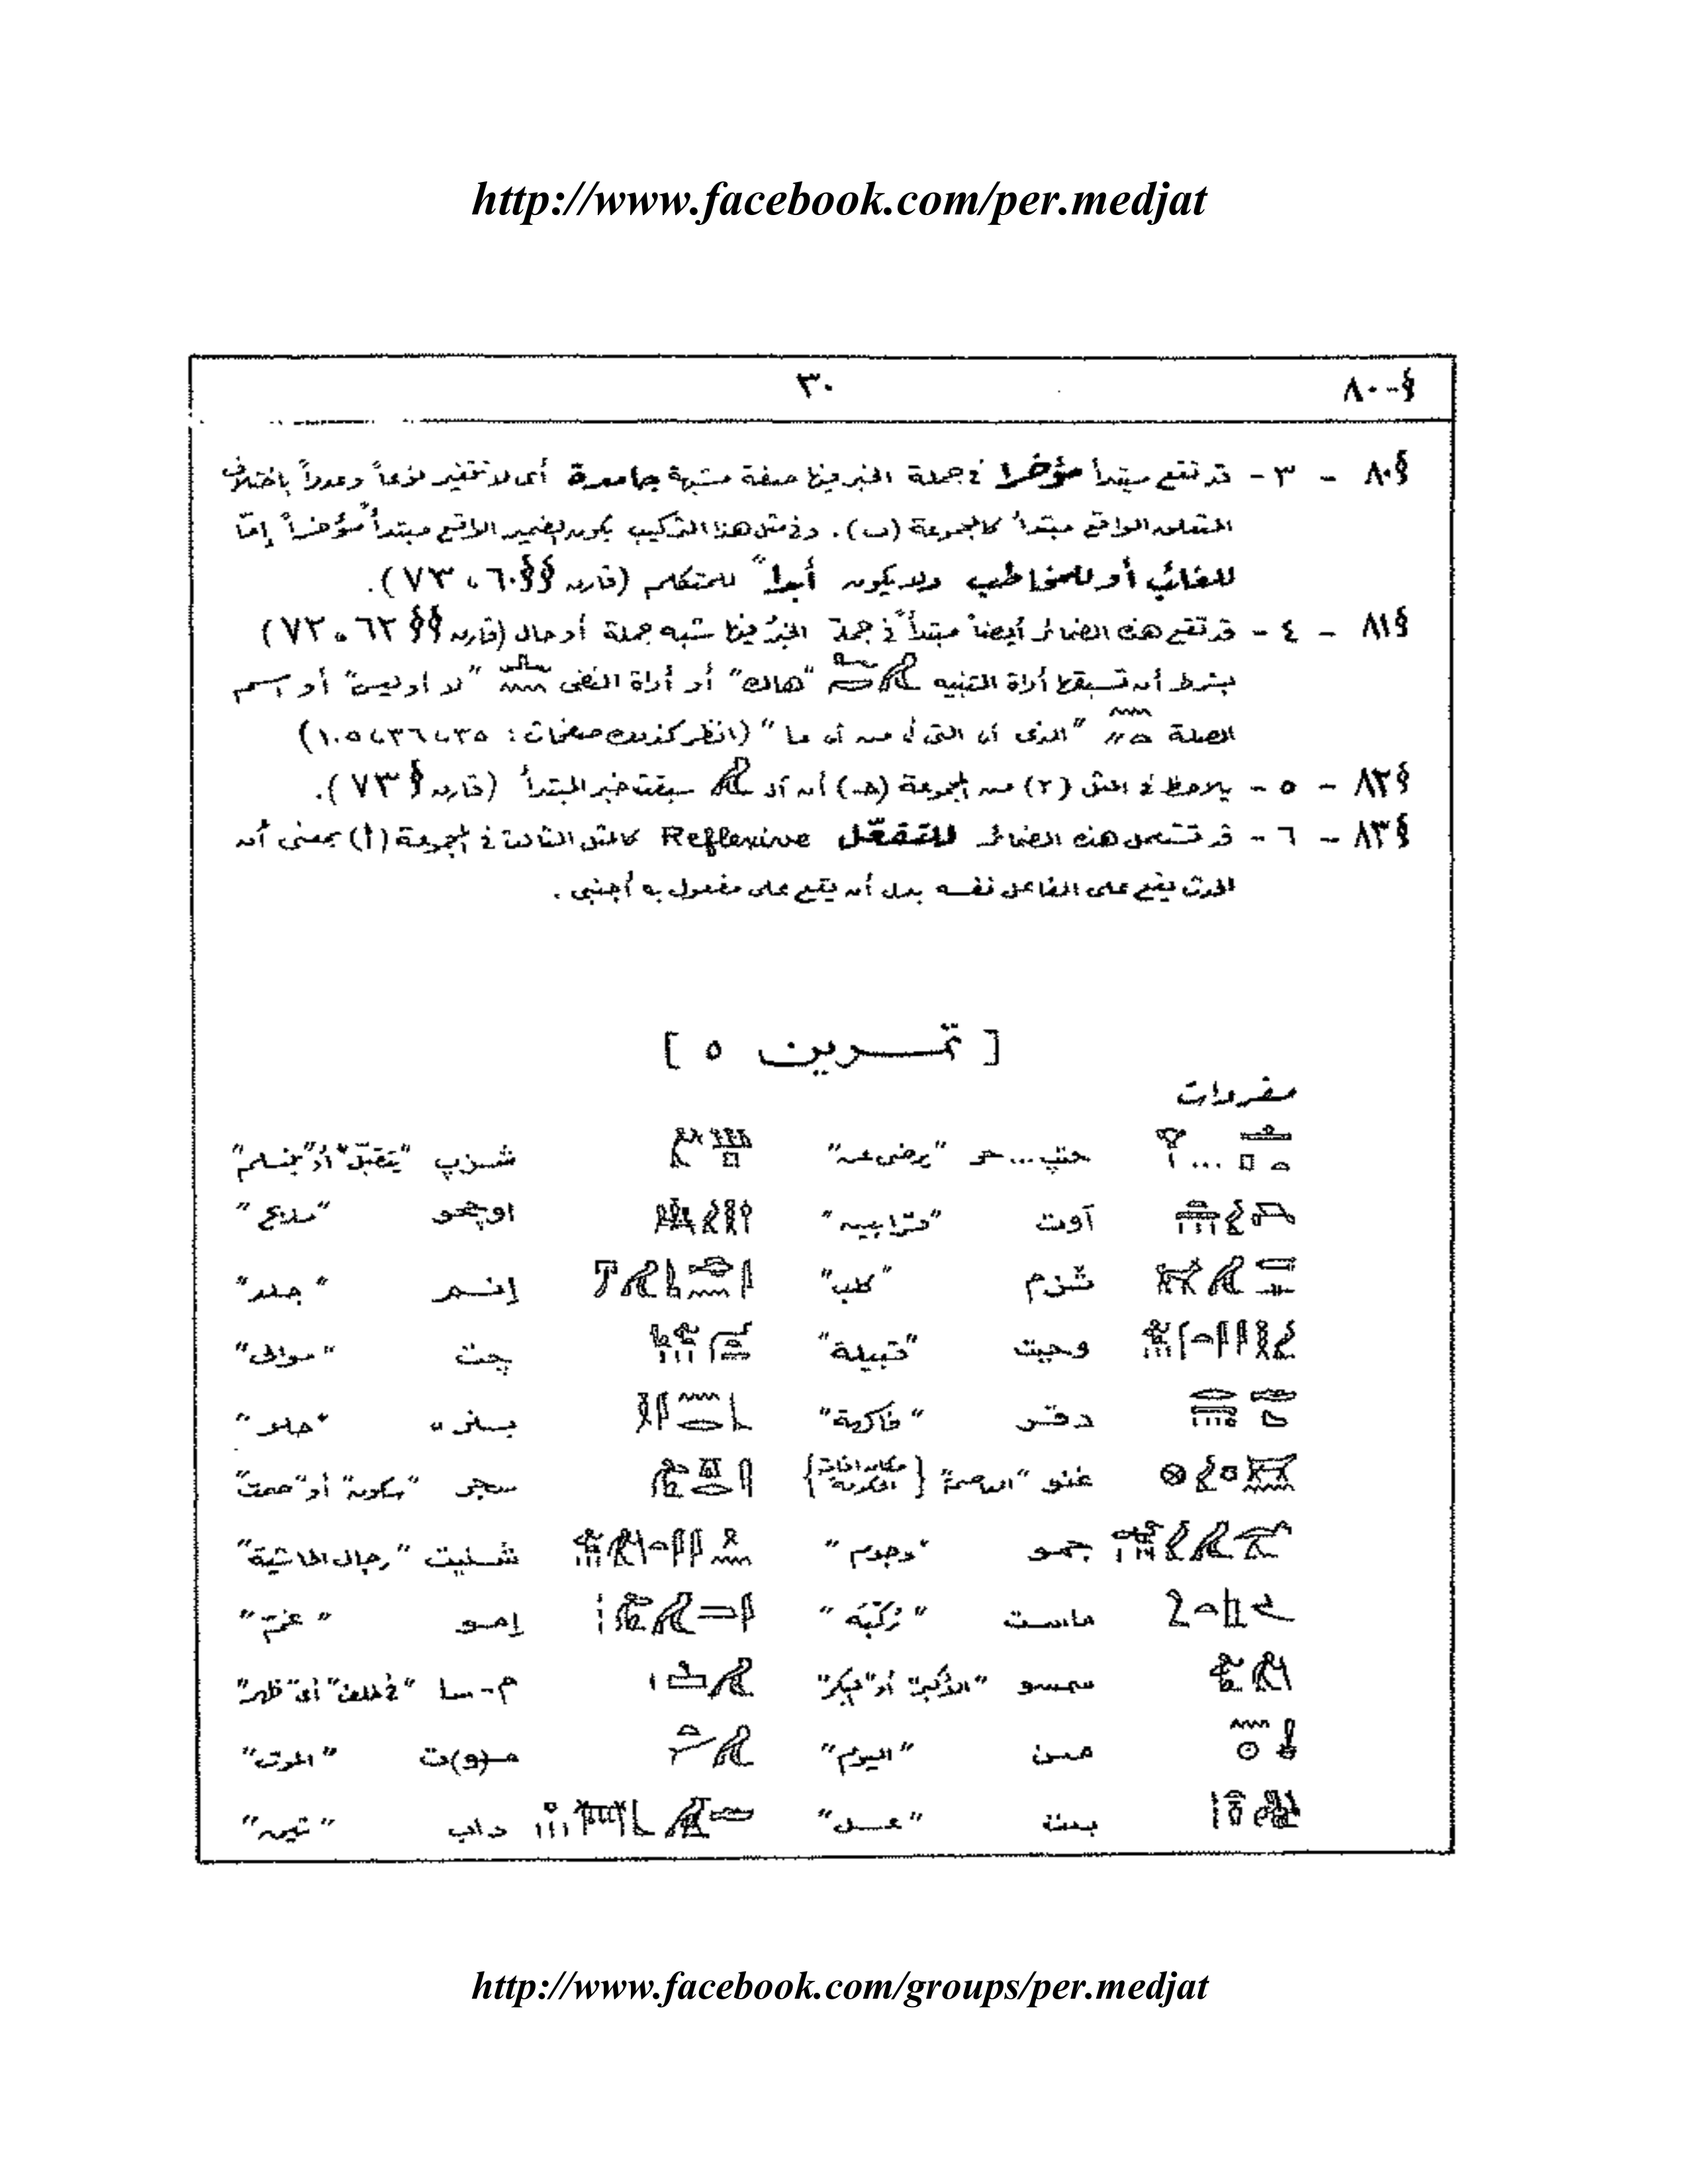 http://www.facebook.com/per.medjat
§-٨٠ ٣٠
§٨٠ - ٣ - قد تقع مبتدأ مؤخرا في جملة الخبر فيها صفة مشبهة جامدة أى لا تتغير نوعاً وعدداً باختلاف
المتعلق الواقع مبتدأ كالمجموعة (ب). وفى مثل هذا التركيب يكون الضمير الواقع مبتدأ مؤخراً إمّا
للغائب أو للمخاطب ولا يكون أبداً للمتكلم (قارن §§ ٦٠، ٧٣).
§٨١ - ٤ - قد تقع هذه الضمائر أيضاً مبتدأ في جملة الخبر فيها شبه جملة أو حال (قارن §§ ٦٢، ٧٢)
بشرط أن تسبقها أداة التنبيه "هاك" أو أداة النفى "لا أو ليس" أو اسم
الصلة "الذى أى التى أى من أى ما" (انظر كذلك صفحات: ٣٥، ٣٦، ١٠٥)
§٨٢ - ٥ - يلاحظ في المثل (٢) من المجموعة (هـ) أن أل سبقت خبر المبتدأ (قارن § ٧٣).
§٨٣ - ٦ - قد تستعمل هذه الضمائر للتفعّل Reflexive كالمثل الثالث في المجموعة (أ) بمعنى أن
الحدث يقع على الفاعل نفسه بدل أن يقع على مفعول به أجنبى.
[ تمـرين ٥ ]
مفردات
حتپ...حر "يرضى عن" شـزپ "يتقبّل" أو "يتسلم"
آوت "قرابين" اوچحو "مذبح"
ثزم "كلب" إنـم "جلد"
وحيت "قبيلة" چت "موالى"
دقـر "فاكهة" بـنر "حلو"
غنو "العاصمة" سجر "سكون" أو "صمت"
جمـو "وجوم" شـنيت "رجال الحاشية"
ماسـت "رُكبَة" إمـو
سمسو "الأكبر" أو "البكر" م-سـا "في خلف" أى "ظهر"
مـن "اليوم" مـ(و)ت "الموت"
بـت "عسـل" داب "تين"
http://www.facebook.com/groups/per.medjat